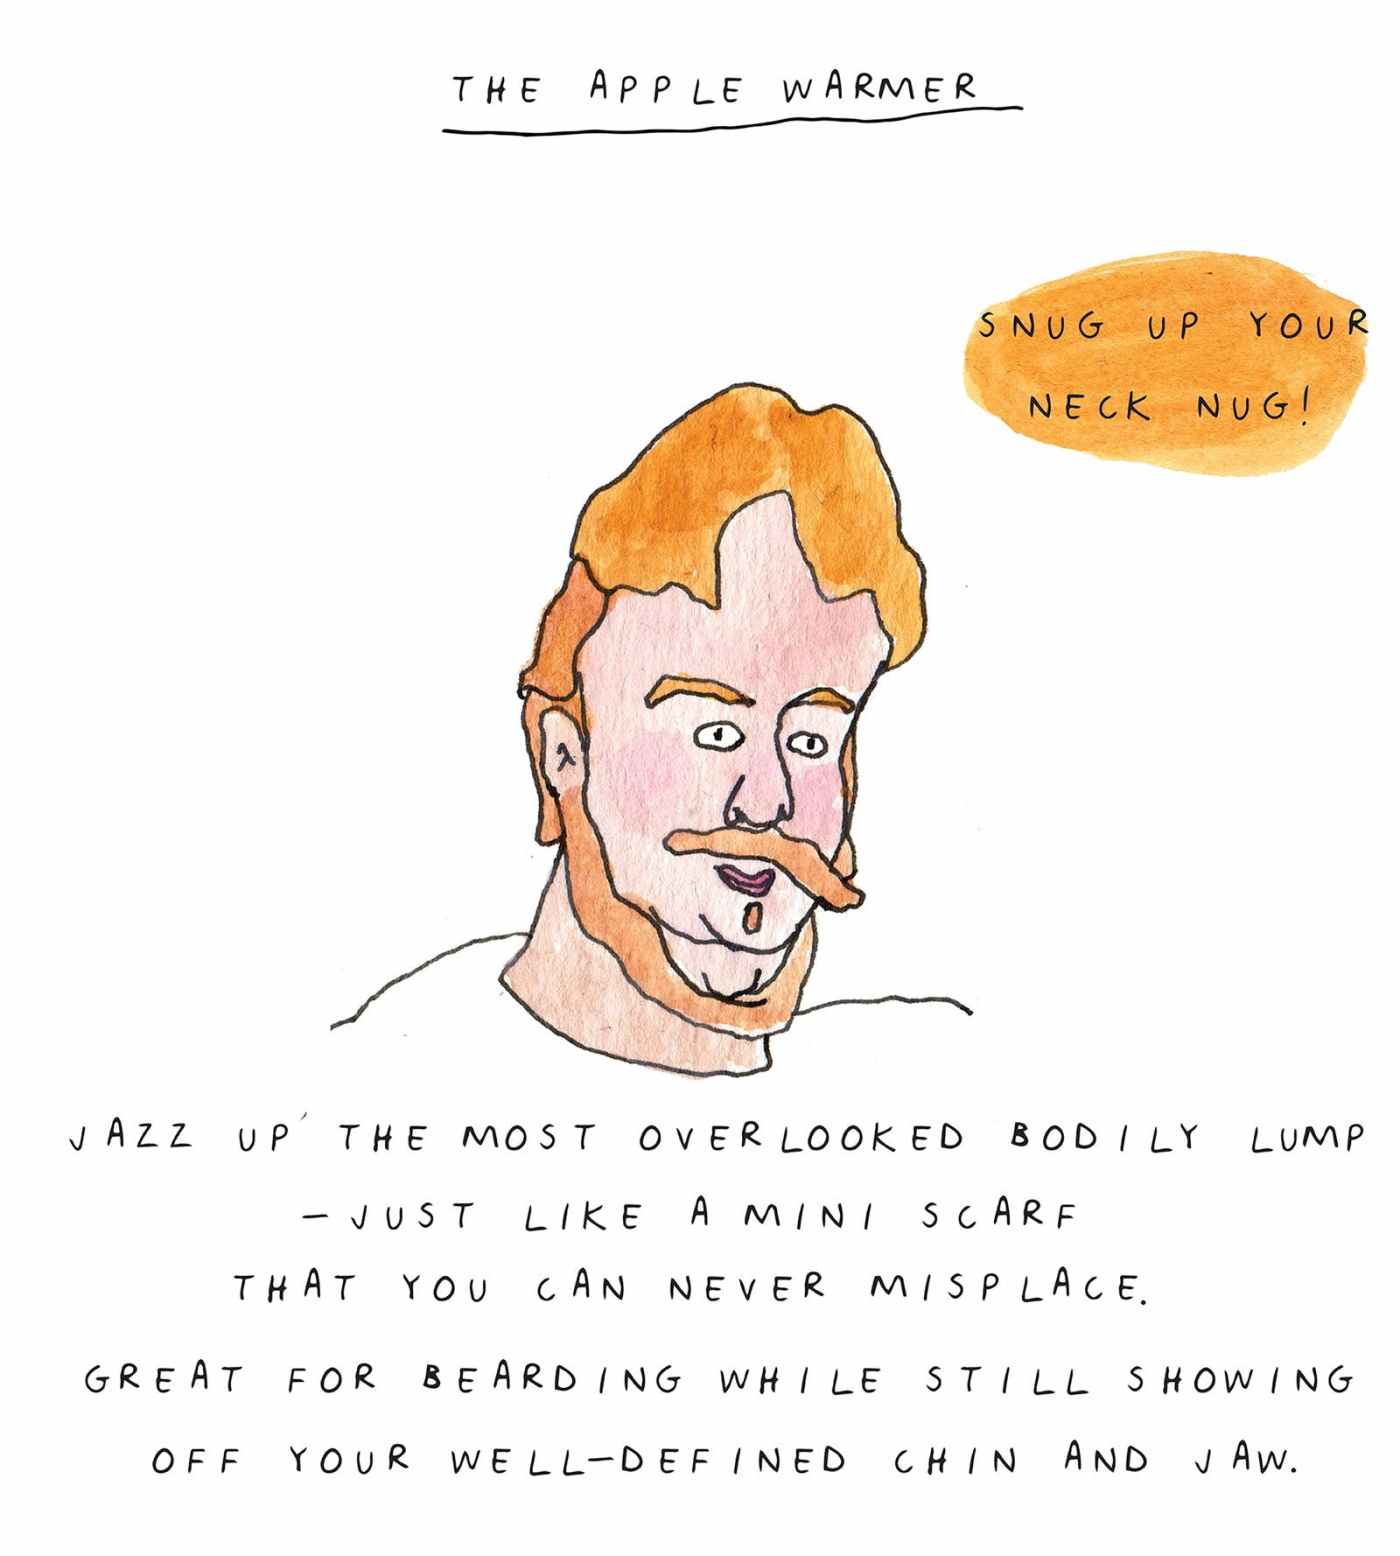 THE APPLE WARMER
SNUG UP YOUR
NECK NUG!
JAZZ UP THE MOST OVERLOOKED BODILY LUMP
—JUST LIKE A MINI SCARF
THAT YOU CAN NEVER MISPLACE.
GREAT FOR BEARDING WHILE STILL SHOWING
OFF YOUR WELL-DEFINED CHIN AND JAW.